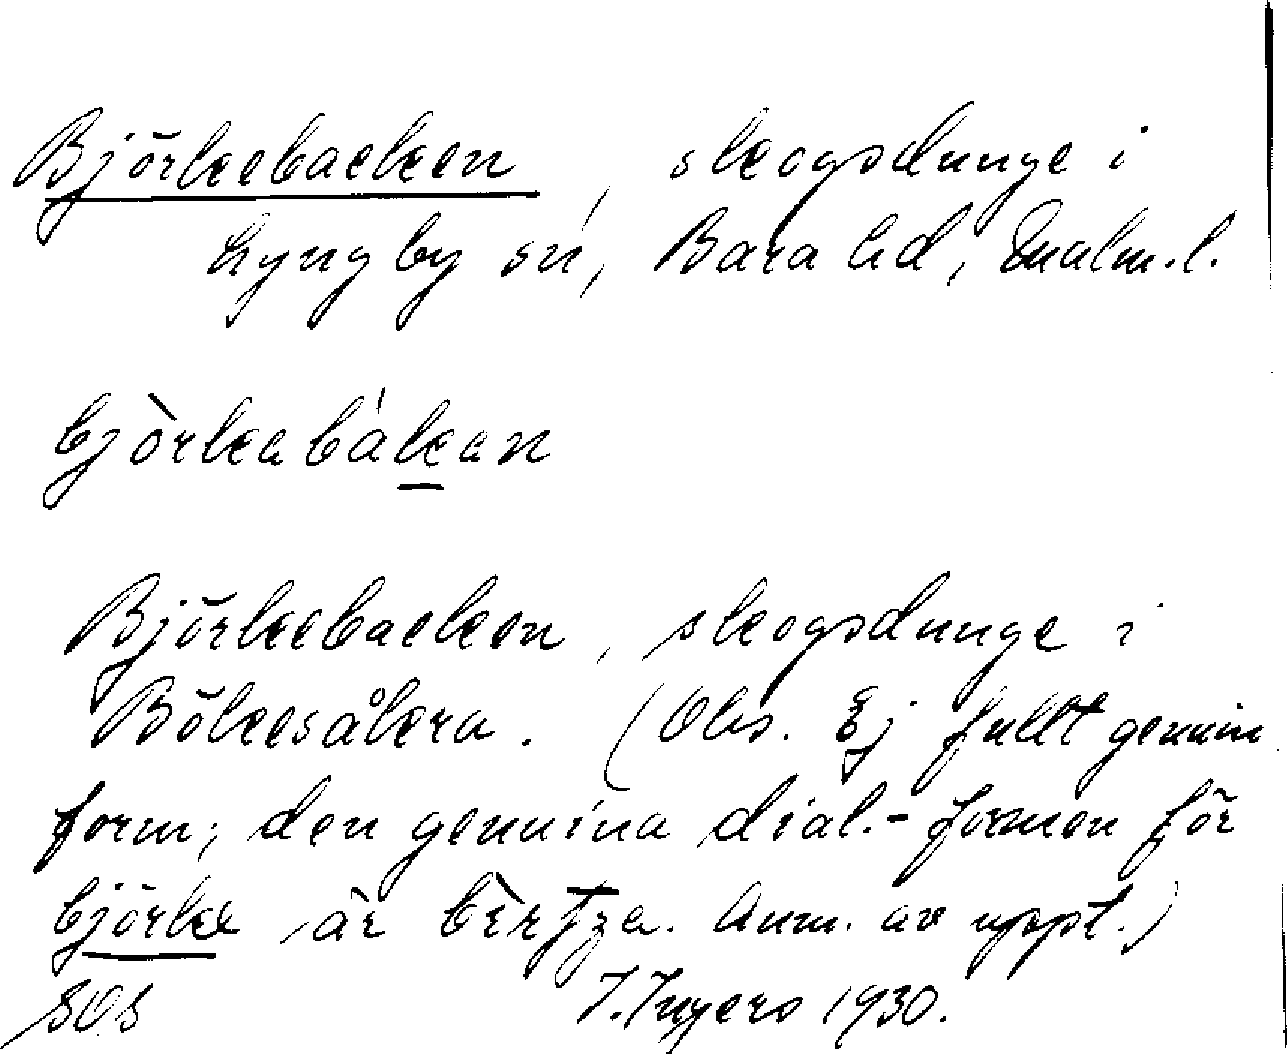 Björkebacken, skogsdunge i
Lyngby sn, Bara hd, Malm.l.
bjòrkabákan
Björkebacken, skogsdunge i
Bökesåkra. (Obs. Ej fullt genuin
form; den genuina dial.-formen för
björke är
Anm. av uppt.)
SOS I. Ingers 1930.